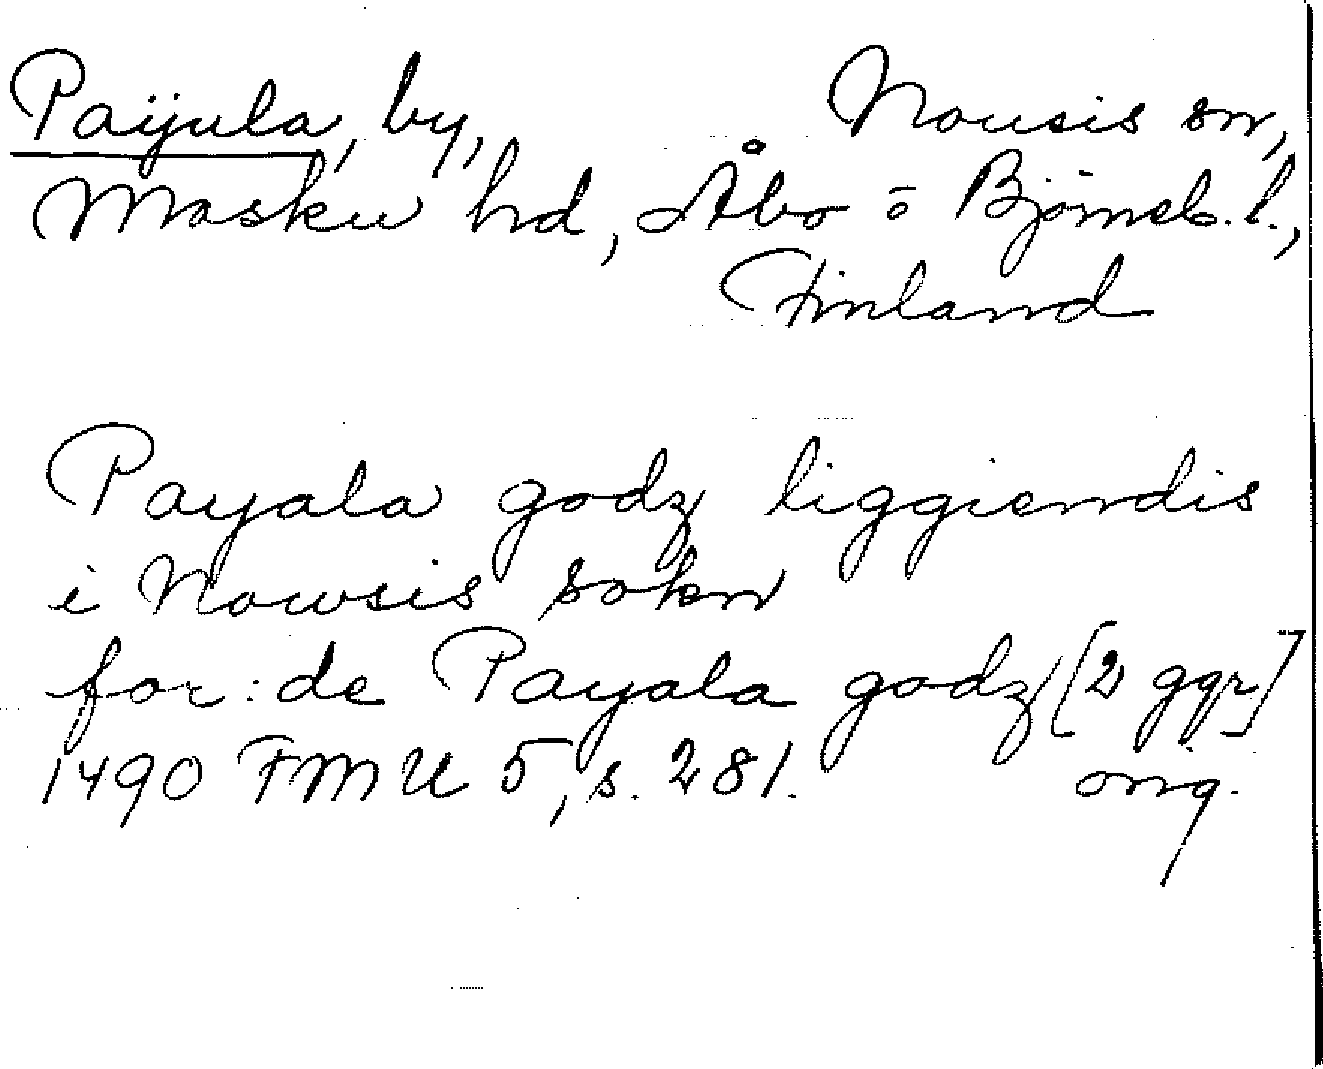 Paijula, by, Nousis sn,
Masku hd, Åbo o Björneb. l.,
Finland
Payala godz liggiendis
i Nowsis sokn
for: de Payala godz [2 ggr]
1490 FMU 5, s. 281. orig.